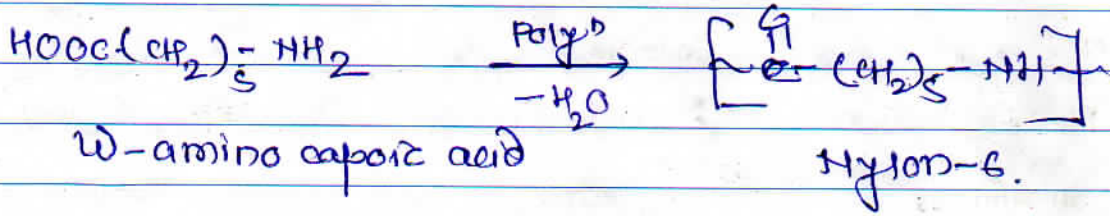 HOOC-(CH2)5-NH2 Polyⁿ → -H2O [-C(=O)-(CH2)5-NH-]
W-amino caporic acid Nylon-6.